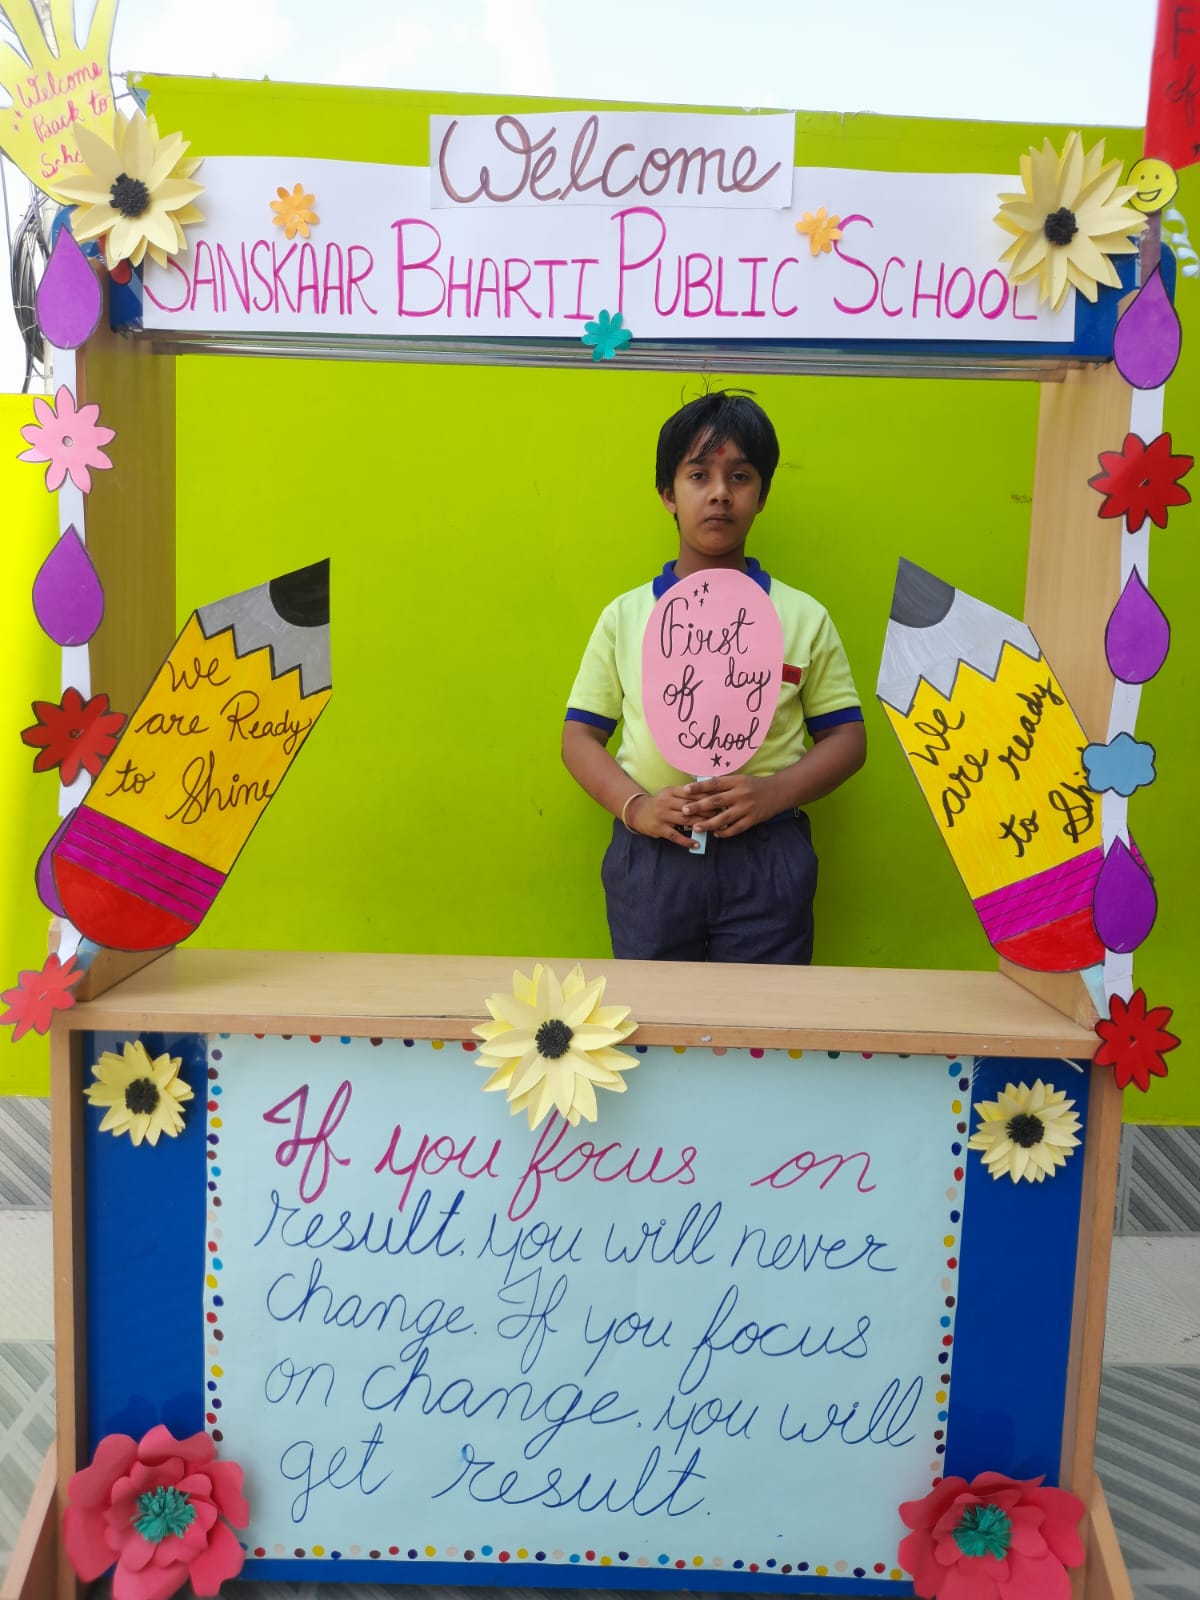 Welcome
Back to
Welcome
SANSKAAR BHARTI PUBLIC SCHOOL
First
of day
School
We
are Ready
to Shine
We
are ready
to Shi
If you focus on
result. you will never
change. If you focus
on change. you will
get result.